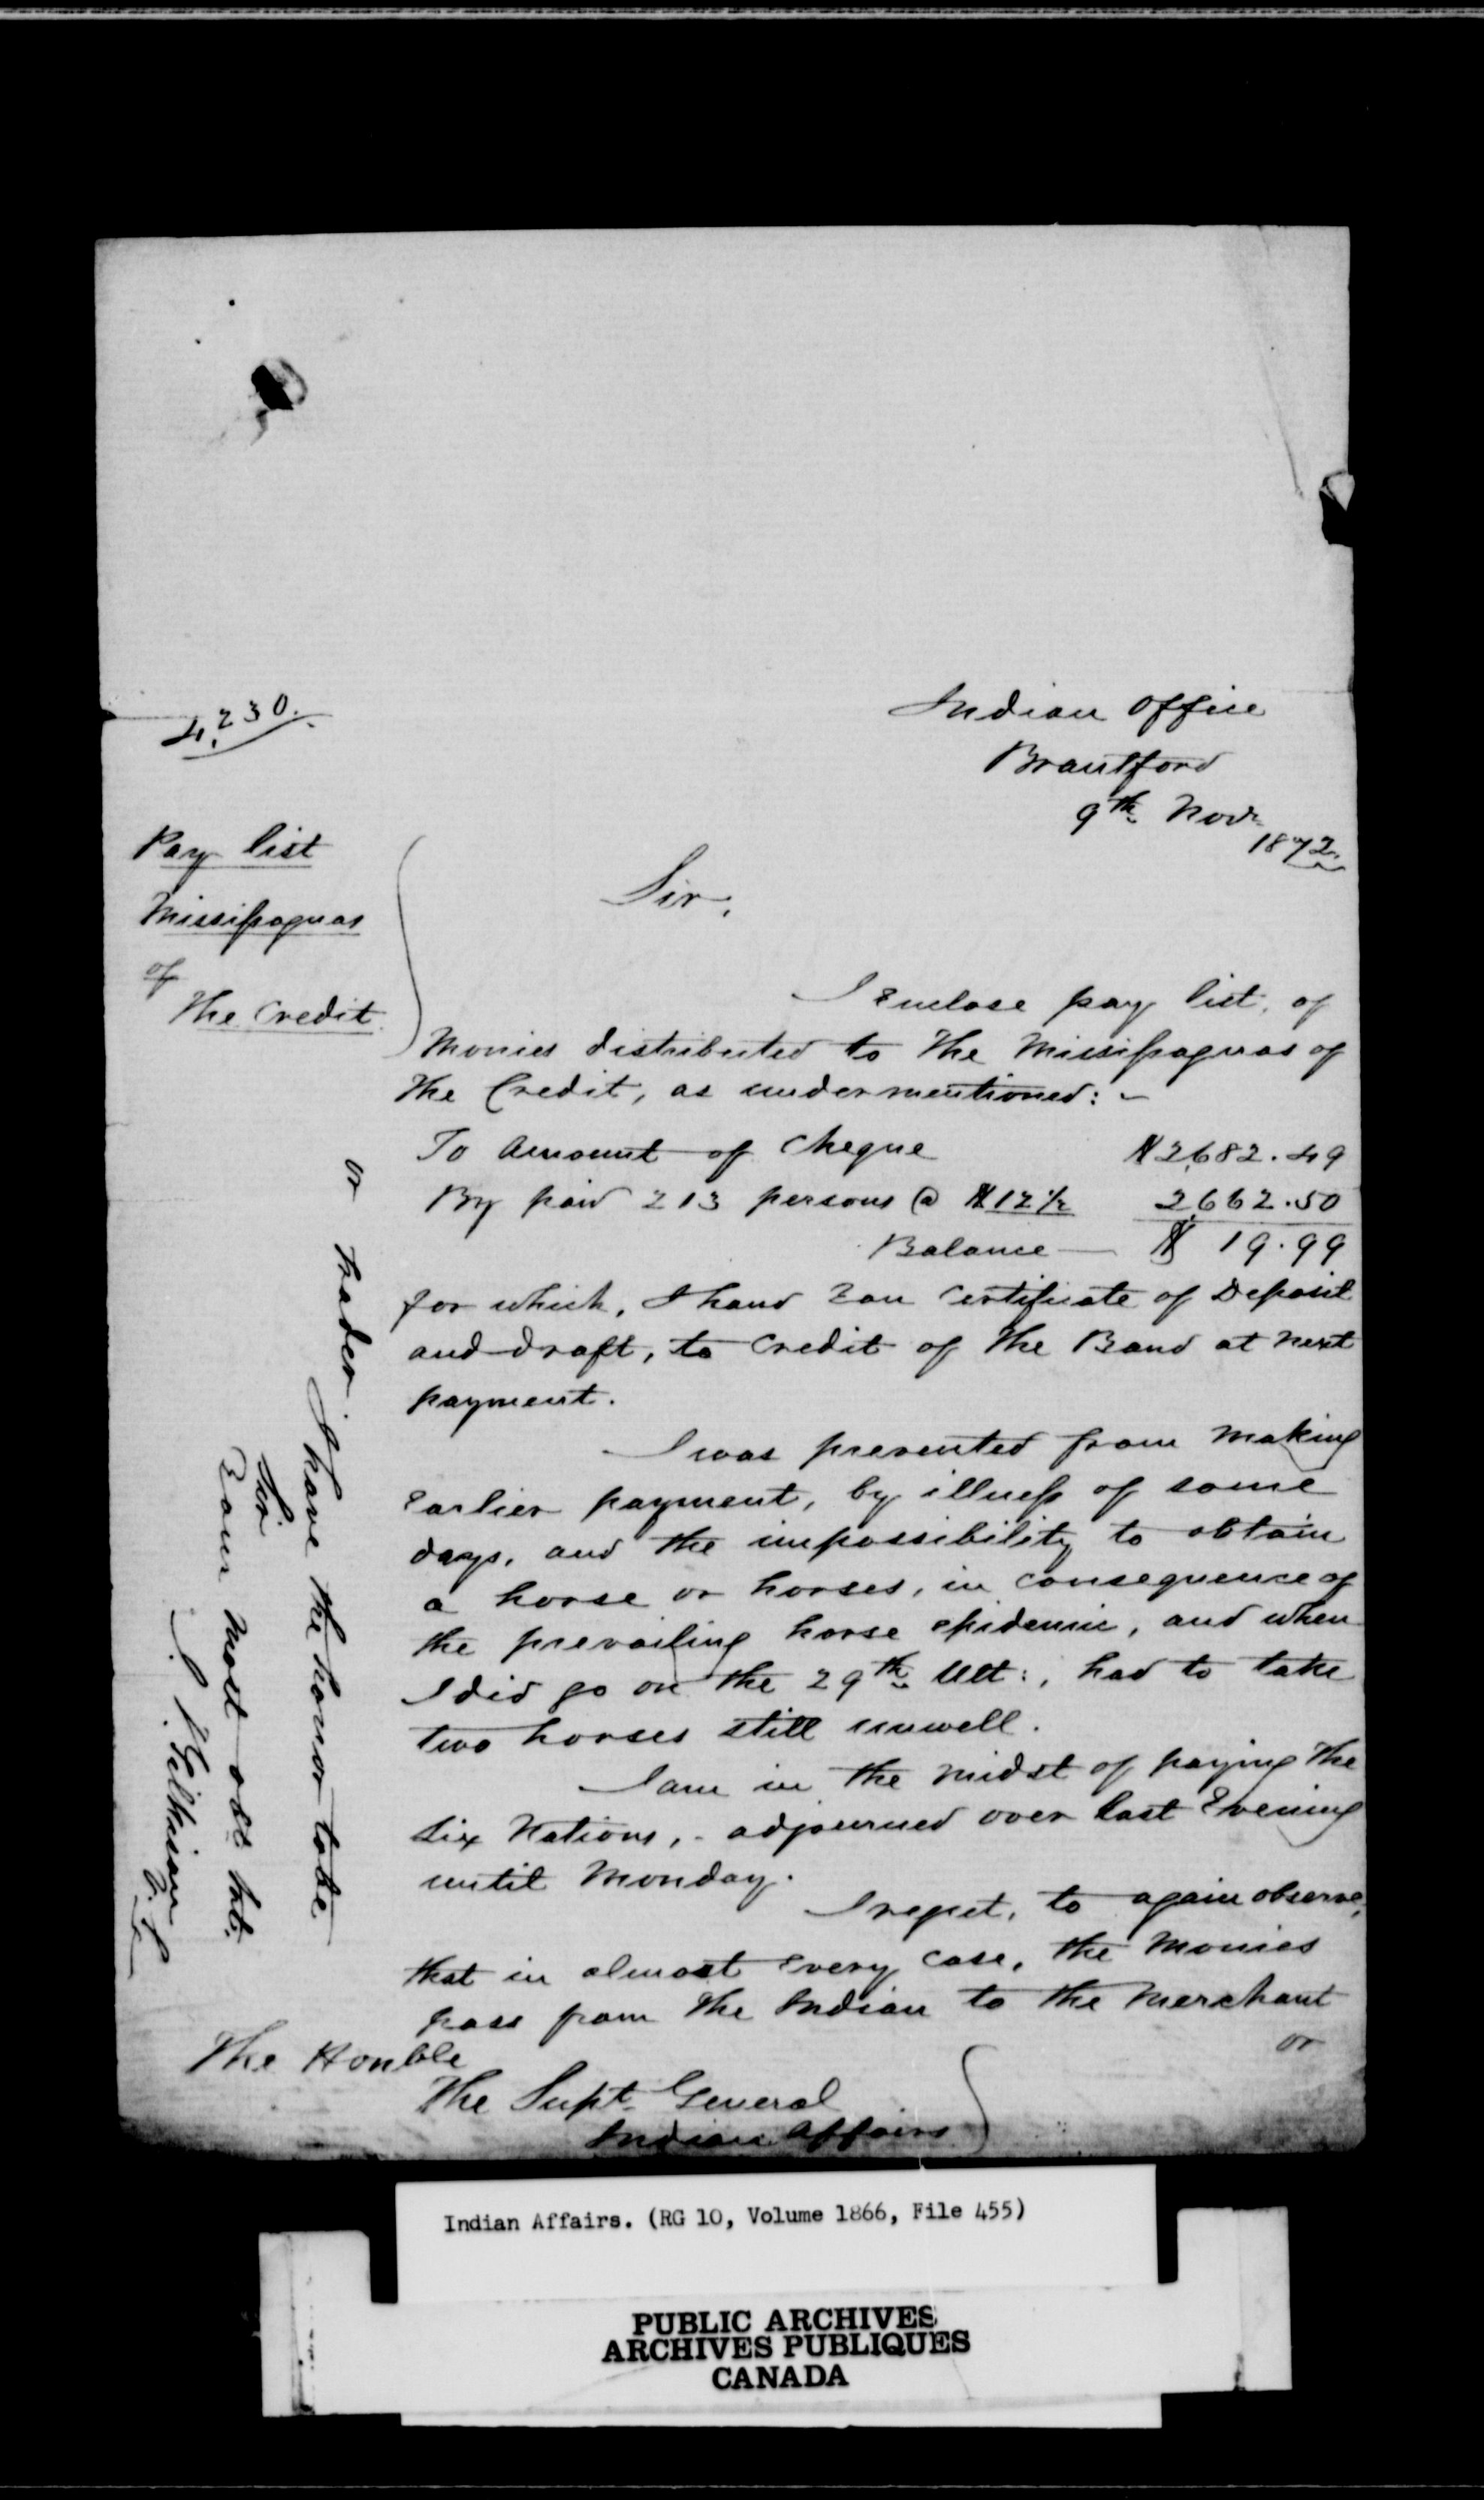 4,230.
Indian Office
Brantford
9th Novr
1872.
Pay list
Mississaguas
of
The Credit
Sir,
I Enclose pay list, of
Monies distributed to the Mississaguas of
the Credit, as undermentioned: -
To Amount of Cheque $2,682.49
By paid 213 persons @ $12½ 2,662.50
Balance — $ 19.99
for which, I hand You Certificate of Deposit
and draft, to Credit of the Band at next
payment.
I was prevented from making
Earlier payment, by illness of some
days, and the impossibility to obtain
a horse or horses, in consequence of
the prevailing horse epidemic, and when
I did go on the 29th Ult:, had to take
two horses still unwell.
I am in the midst of paying the
Six Nations, - adjourned over last Evening
until Monday.
I regret, to again observe,
that in almost Every case, the Monies
pass from the Indian to the Merchant
or
or trader.
I have the honor to be
Sir
Your most obt
J Gilkison
The Honble
The Supt. General
Indian Affairs
Indian Affairs. (RG 10, Volume 1866, File 455)
PUBLIC ARCHIVES
ARCHIVES PUBLIQUES
CANADA